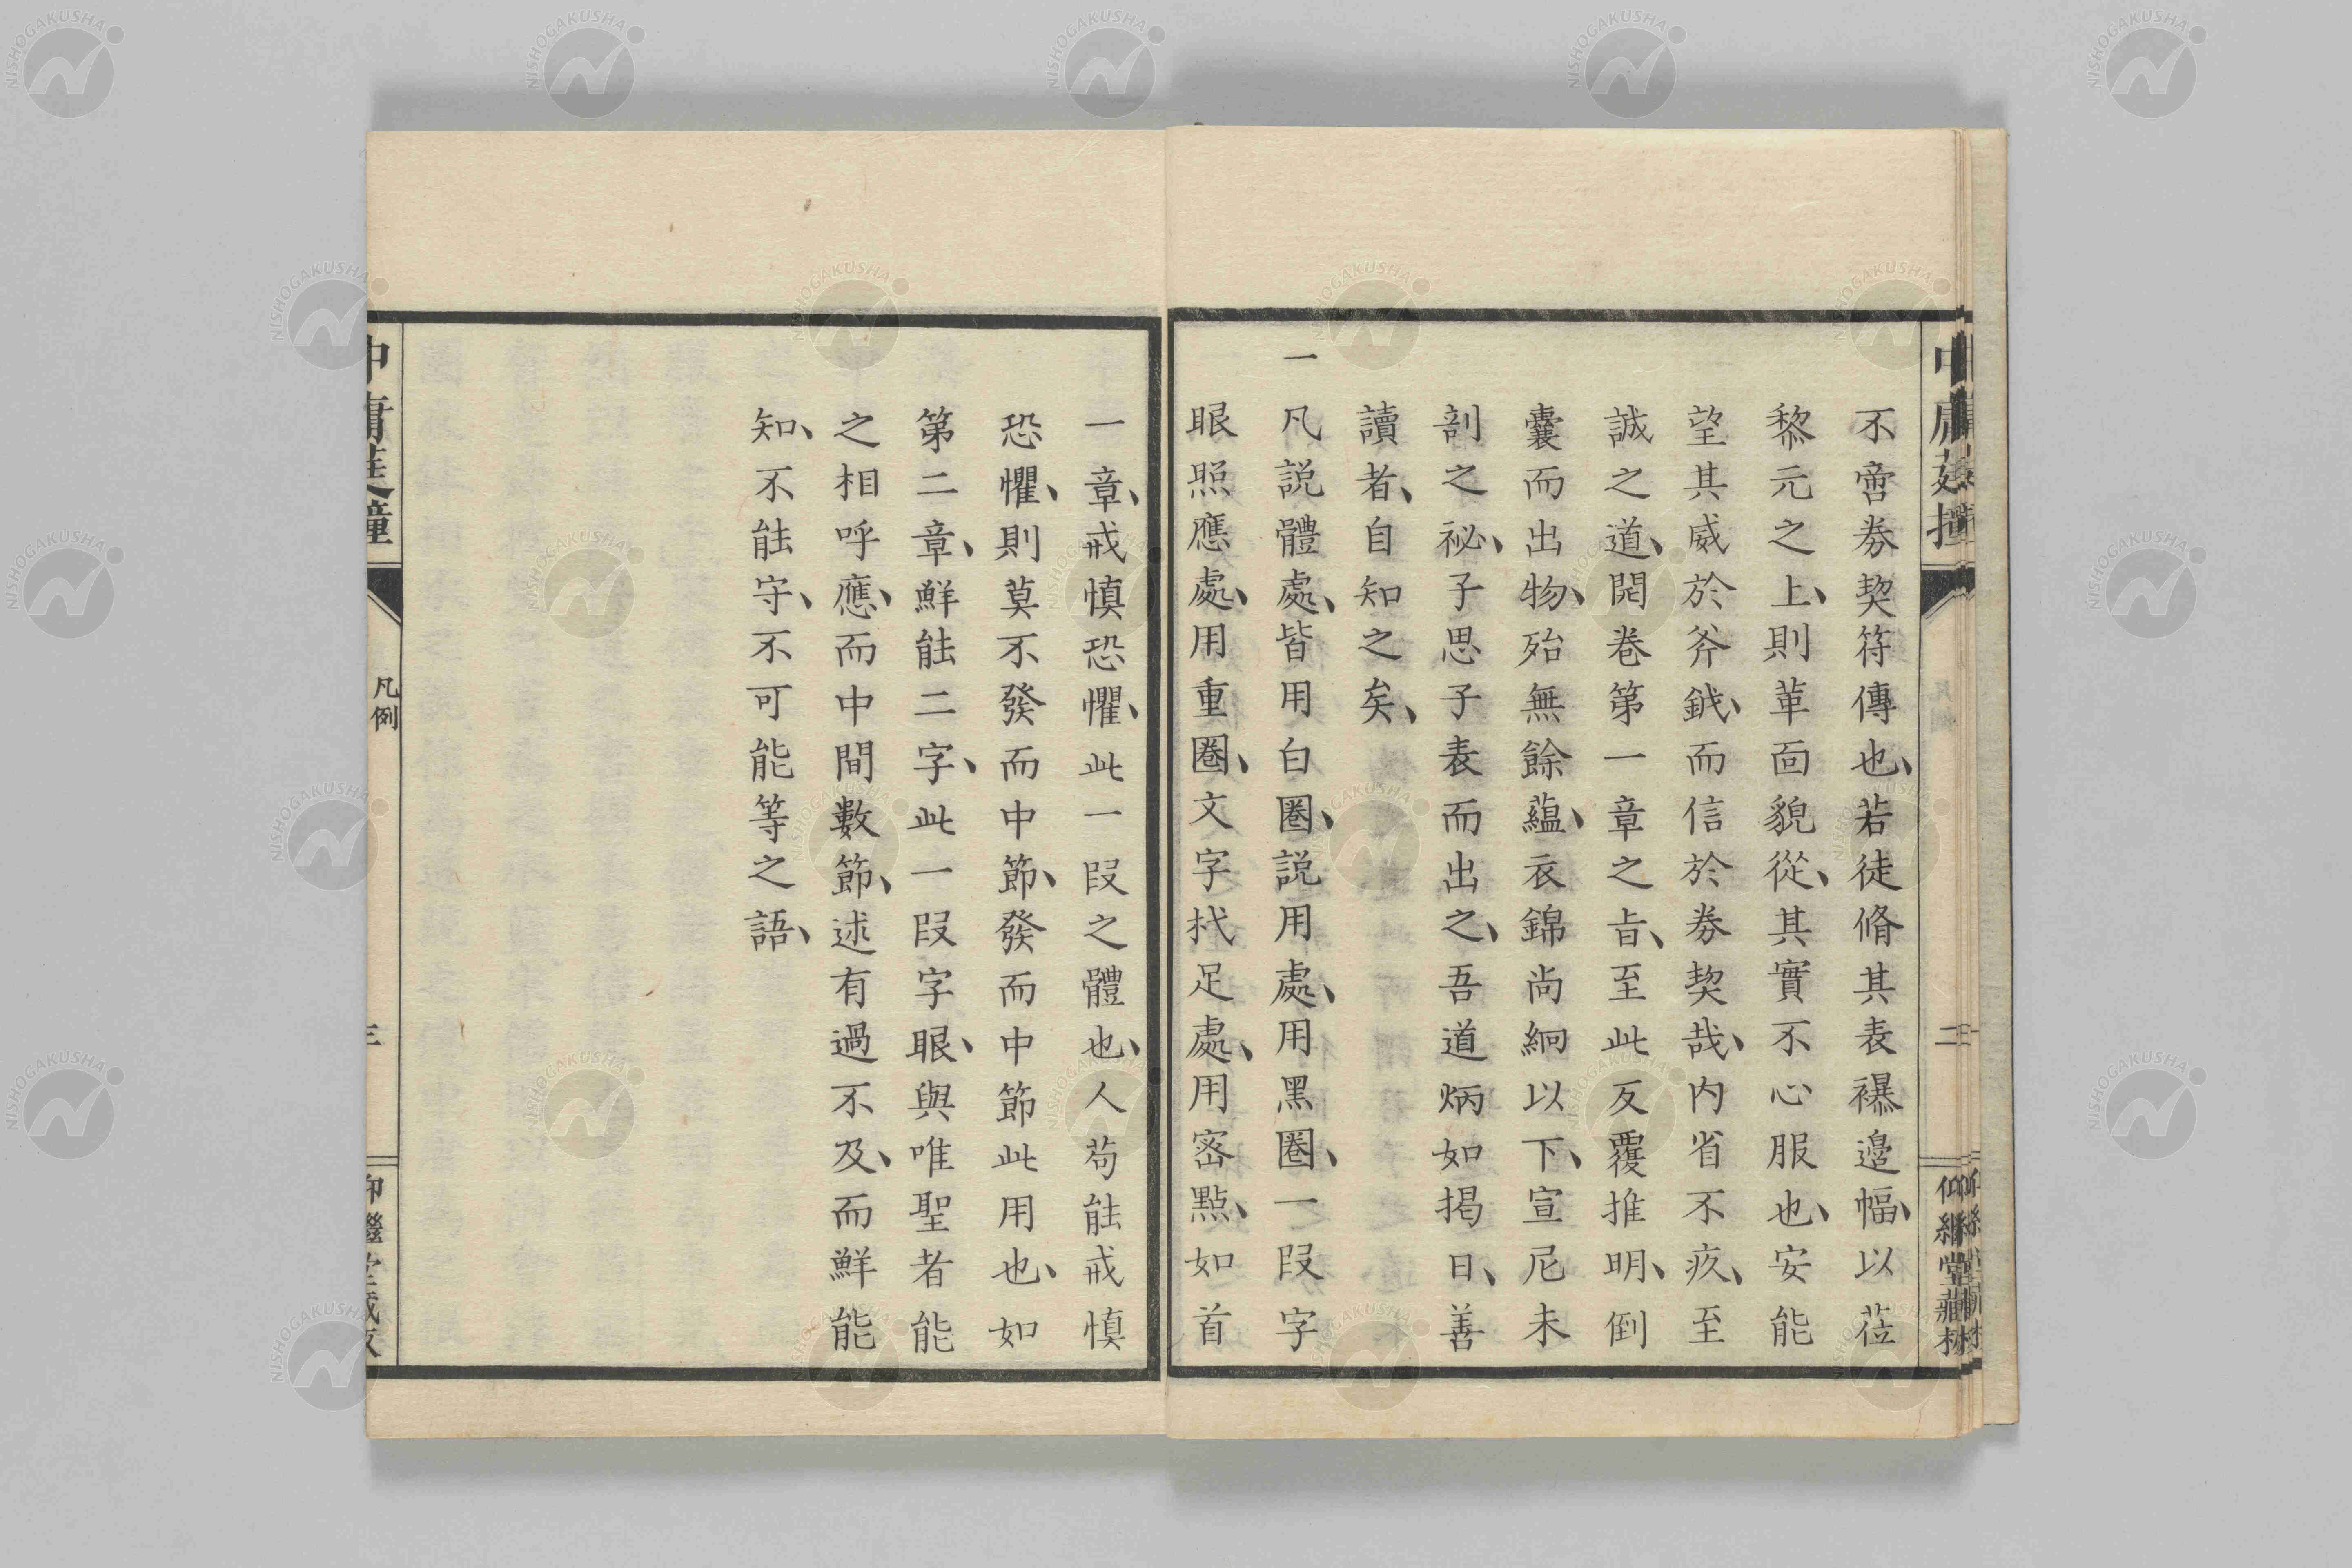 不啻券契符傳也、若徒脩其表襮邊幅、以莅
黎元之上、則革面貌從、其實不心服也、安能
望其威於斧鉞、而信於券契哉、内省不疚、至
誠之道、開卷第一章之㫖、至此反覆推明、倒
囊而出物、殆無餘蘊、衣錦尚絅以下、宣尼未
剖之祕、子思子表而出之、吾道炳如揭日、善
讀者、自知之矣、
一凡説體處、皆用白圏、説用處、用黑圏、一段字
眼照應處、用重圏、文字扤足處、用宻點、如首
中庸莛撞
二
一章、戒慎恐懼、此一段之體也、人苟能戒慎
恐懼、則莫不發而中節、發而中節此用也、如
第二章、鮮能二字、此一段字眼、與唯聖者能
之相呼應、而中間數節、述有過不及、而鮮能
知、不能守、不可能等之語、
中庸莛撞
凡例
三
NISHOGAKUSHA